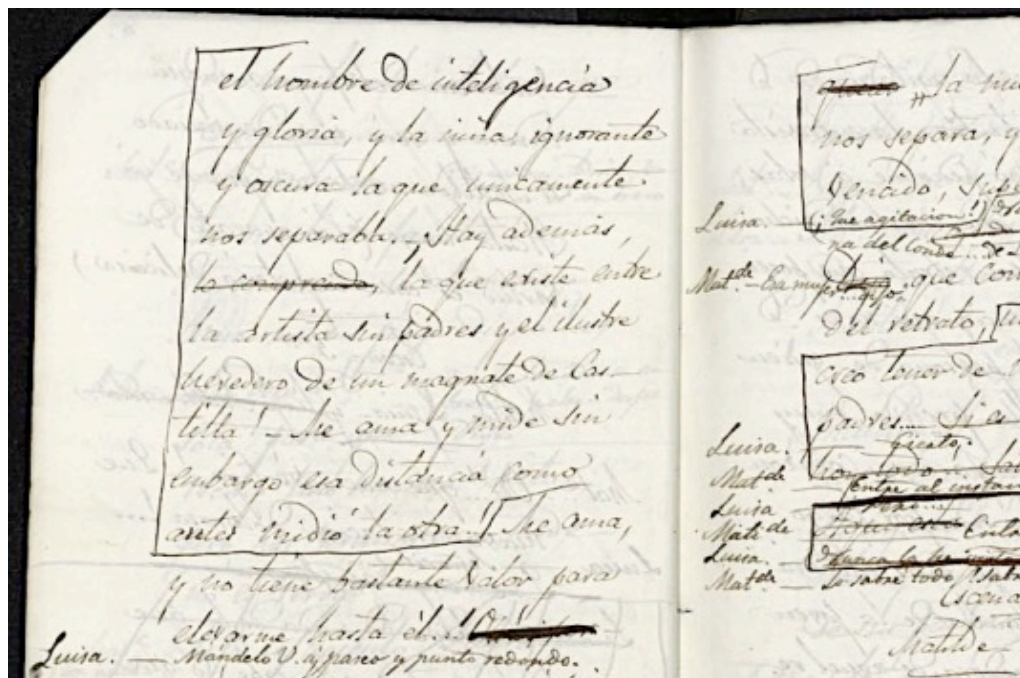 el hombre de inteligencia
y gloria, y la niña ignorante
y oscura la que unicamente
nos separaba, Hay además,
lo comprendo, la que existe entre
la artista sin padres y el ilustre
heredero de un magnate de Cas-
tilla! - Me ama y mide sin
embargo esa distancia como
antes midió la otra..! Me ama,
y no tiene bastante valor para
elevarme hasta él..!
Luisa. — Mandelo V. á paseo y punto redondo.
la
nos separa, y
vencido,
Luisa. — (¡Que agitacion!)
na del conde...
Mat.de - Era muy que
del retrato,
creo tener de
padres.... Si es
Luisa. — Cierto,
Mat.de — todo
Entre al instan
Luisa
Mat.de Aqui esta
Luisa. nunca la he
Mat.de — Lo sabre todo
Escena
Matilde